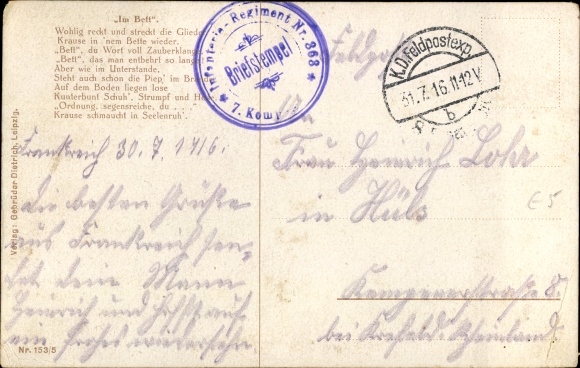 „Im Bett“.
Wohlig reckt und streckt die Glieder
Krause in 'nem Bette wieder.
„Bett“, du Wort voll Zauberklang
„Bett“, das man entbehrt so lang
Aber wie im Unterstande,
Steht auch schon die Piep' im Bra
Auf dem Boden liegen lose
Kunterbunt Schuh', Strumpf und H
„Ordnung, segensreiche, du . . .“
Krause schmaucht in Seelenruh'.
Infanterie-Regiment Nr. 368
Briefstempel
7. Komp.
Feldpost
K.D. Feldpostexp.
31.7.16.11-12V
b
Frankreich 30.7.1916.
Die besten Grüße
aus Frankreich sen-
det dein Mann
Heinrich und hofft auf
ein frohes wiedersehn
Frau Heinrich Lohr
in Hüls
Kempenerstraße 8.
bei Krefeld. Rheinland.
E5
Verlag: Gebrüder Dietrich, Leipzig.
Nr. 153/5